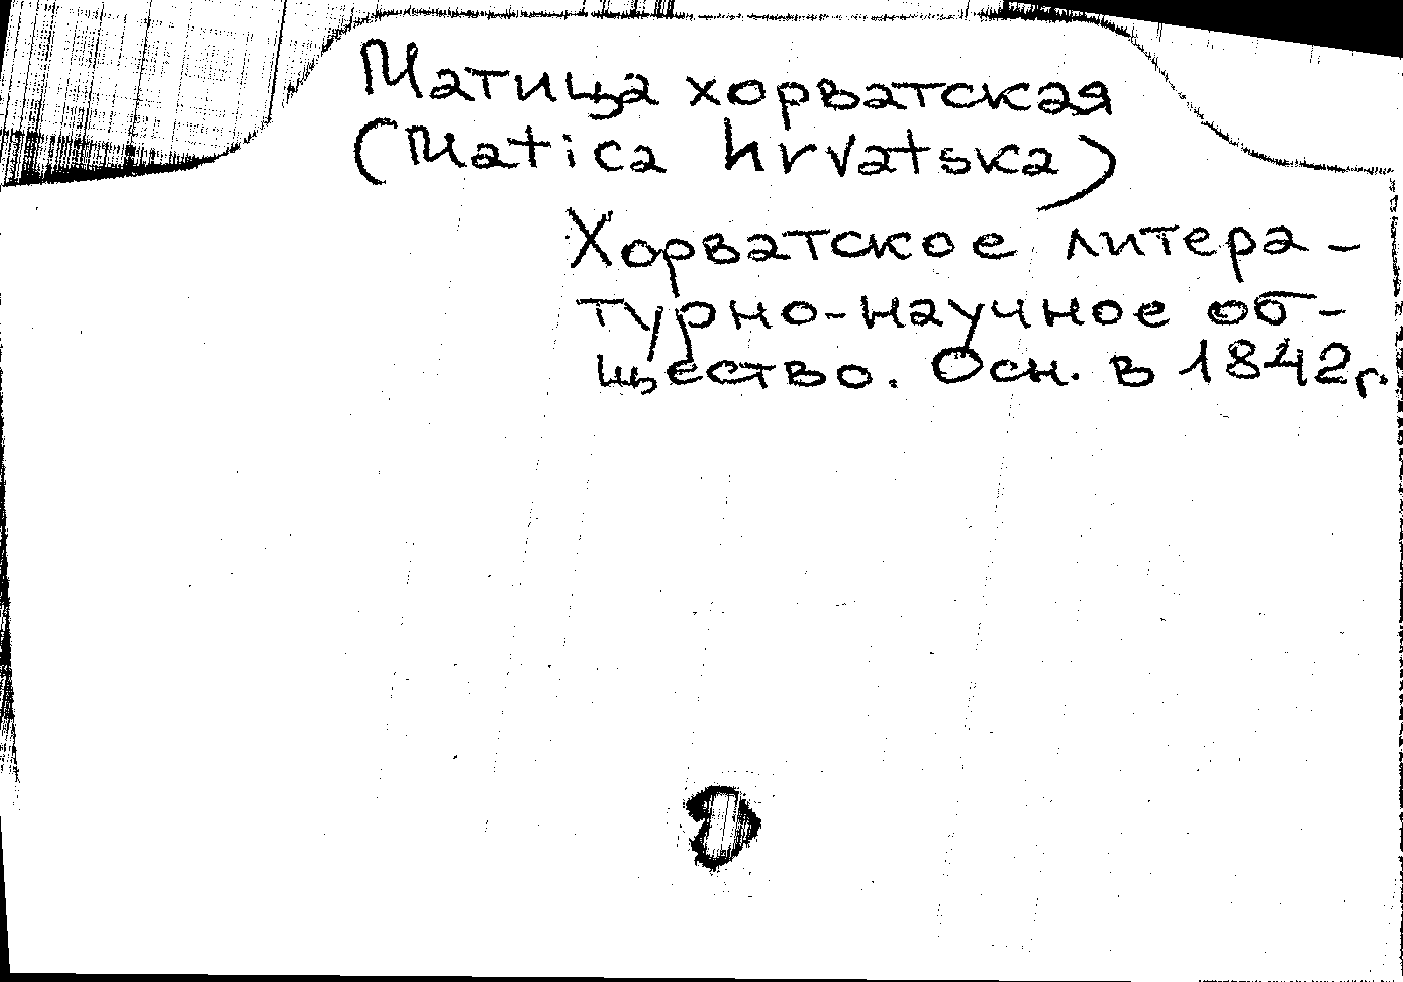 Матица хорватская
(Matica hrvatska)
Хорватское литера-
турно-научное об-
щество. Осн. в 1842г.